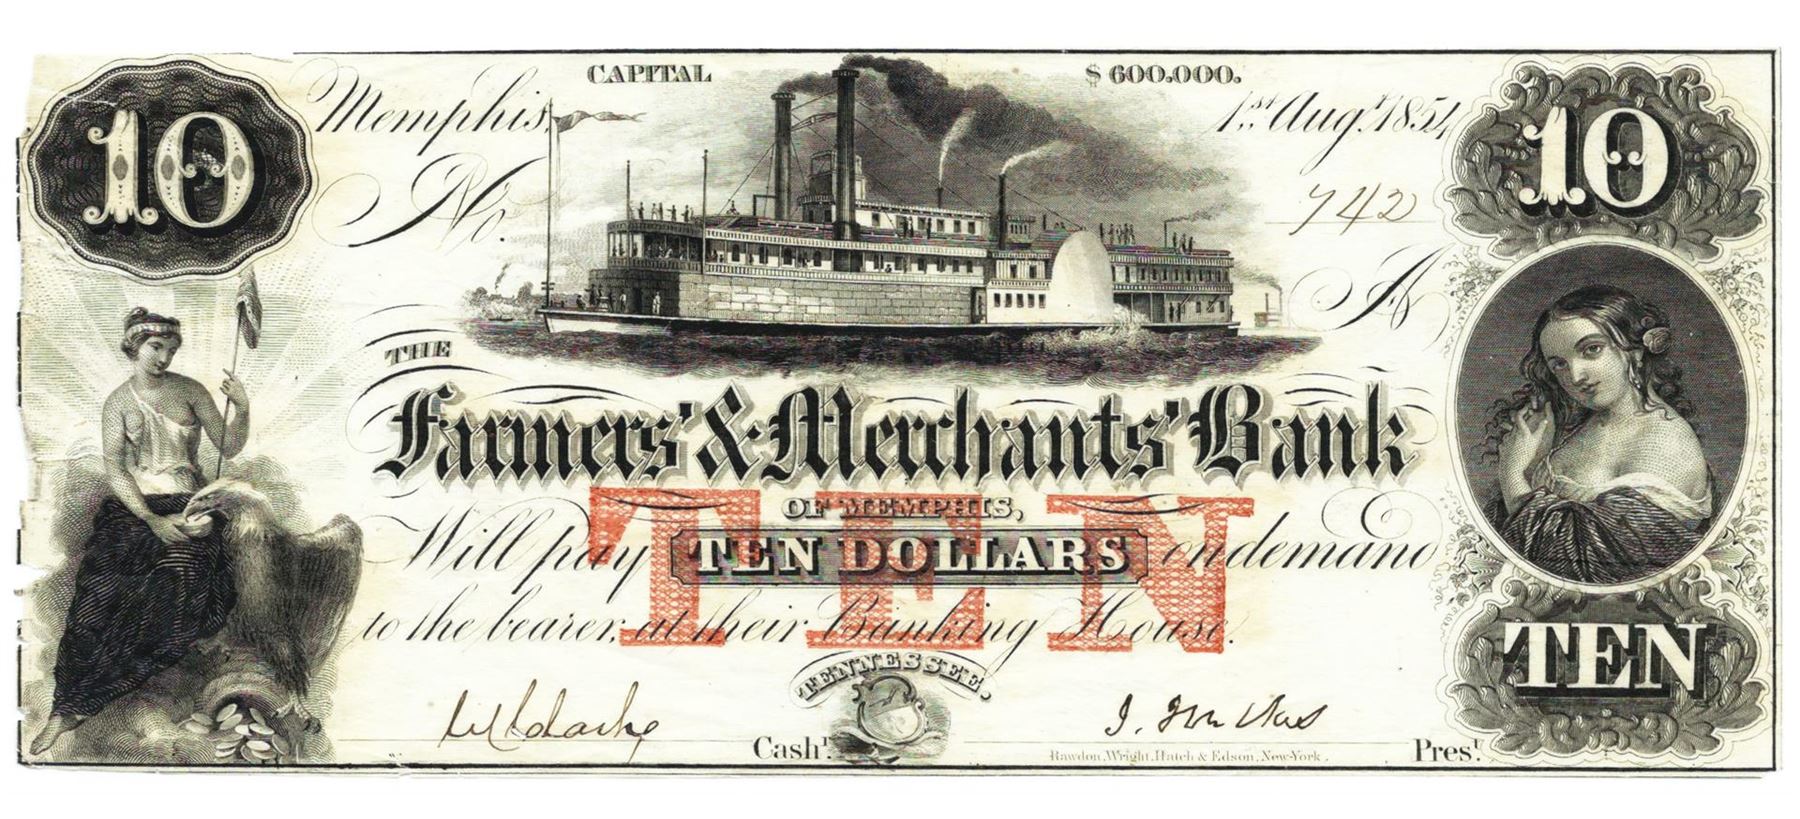 CAPITAL $ 600.000.
10 Memphis, 1st Augt. 1854 10
No. 742
A
THE
Farmers' & Merchants' Bank
OF MEMPHIS,
TEN
Will pay TEN DOLLARS on demand
to the bearer, at their Banking House.
TENNESSEE.
Cashr. Rawdon, Wright, Hatch & Edson, New-York. Prest.
TEN